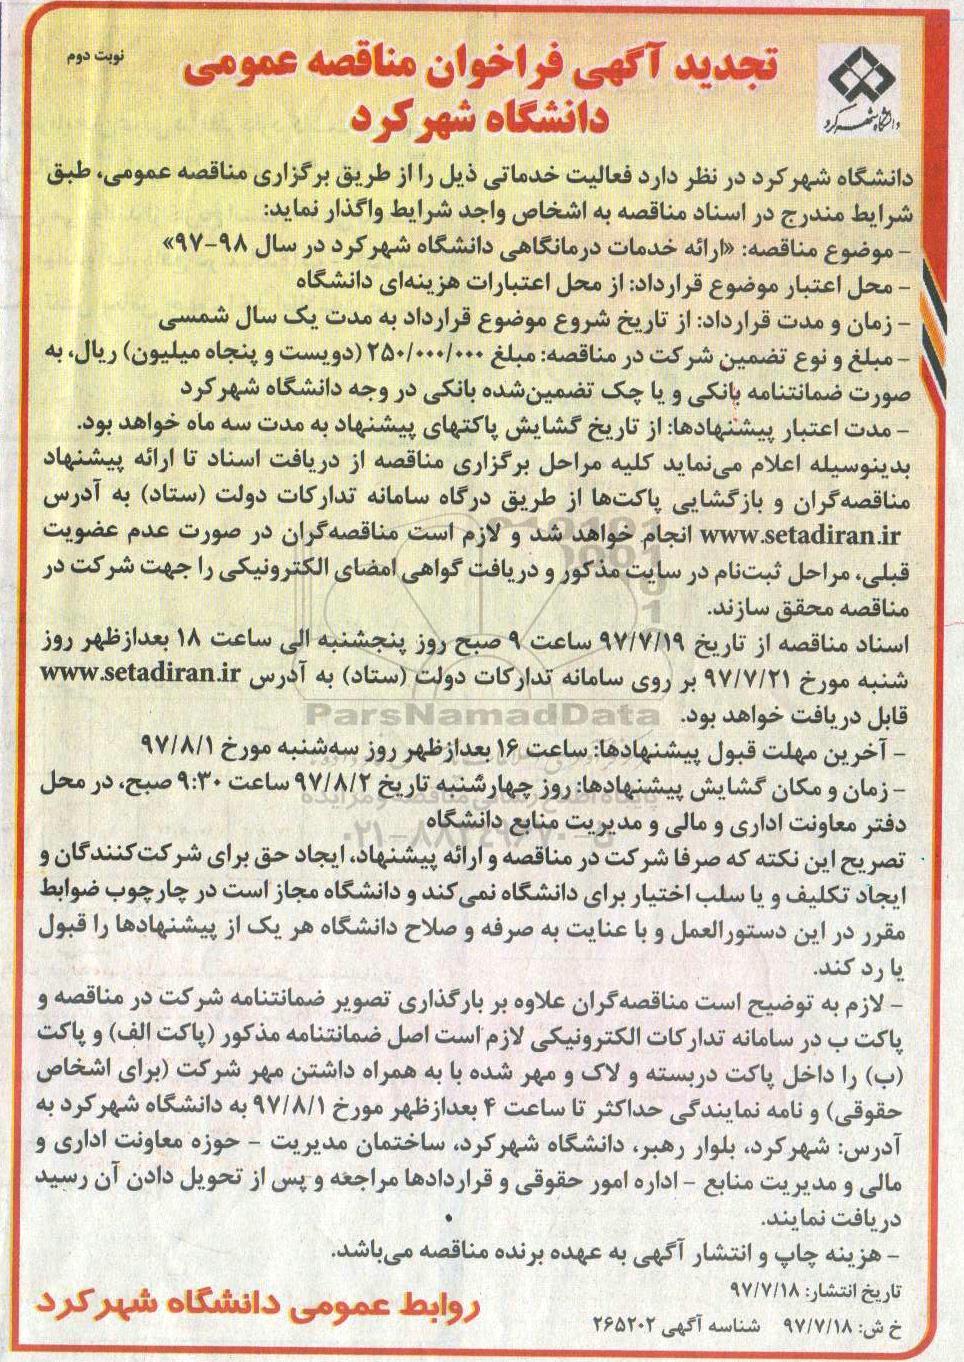 نوبت دوم
تجدید آگهی فراخوان مناقصه عمومی
دانشگاه شهرکرد
دانشگاه شهرکرد
دانشگاه شهرکرد در نظر دارد فعالیت خدماتی ذیل را از طریق برگزاری مناقصه عمومی، طبق
شرایط مندرج در اسناد مناقصه به اشخاص واجد شرایط واگذار نماید:
- موضوع مناقصه: «ارائه خدمات درمانگاهی دانشگاه شهرکرد در سال ۹۸-۹۷»
- محل اعتبار موضوع قرارداد: از محل اعتبارات هزینه‌ای دانشگاه
- زمان و مدت قرارداد: از تاریخ شروع موضوع قرارداد به مدت یک سال شمسی
- مبلغ و نوع تضمین شرکت در مناقصه: مبلغ ۲۵۰/۰۰۰/۰۰۰ (دویست و پنجاه میلیون) ریال، به
صورت ضمانتنامه بانکی و یا چک تضمین‌شده بانکی در وجه دانشگاه شهرکرد
- مدت اعتبار پیشنهادها: از تاریخ گشایش پاکتهای پیشنهاد به مدت سه ماه خواهد بود.
بدینوسیله اعلام می‌نماید کلیه مراحل برگزاری مناقصه از دریافت اسناد تا ارائه پیشنهاد
مناقصه‌گران و بازگشایی پاکت‌ها از طریق درگاه سامانه تدارکات دولت (ستاد) به آدرس
www.setadiran.ir انجام خواهد شد و لازم است مناقصه‌گران در صورت عدم عضویت
قبلی، مراحل ثبت‌نام در سایت مذکور و دریافت گواهی امضای الکترونیکی را جهت شرکت در
مناقصه محقق سازند.
اسناد مناقصه از تاریخ ۹۷/۷/۱۹ ساعت ۹ صبح روز پنجشنبه الی ساعت ۱۸ بعدازظهر روز
شنبه مورخ ۹۷/۷/۲۱ بر روی سامانه تدارکات دولت (ستاد) به آدرس www.setadiran.ir
قابل دریافت خواهد بود.
ParsNamadData
- آخرین مهلت قبول پیشنهادها: ساعت ۱۶ بعدازظهر روز سه‌شنبه مورخ ۹۷/۸/۱
- زمان و مکان گشایش پیشنهادها: روز چهارشنبه تاریخ ۹۷/۸/۲ ساعت ۹:۳۰ صبح، در محل
دفتر معاونت اداری و مالی و مدیریت منابع دانشگاه
تصریح این نکته که صرفا شرکت در مناقصه و ارائه پیشنهاد، ایجاد حق برای شرکت‌کنندگان و
ایجاد تکلیف و یا سلب اختیار برای دانشگاه نمی‌کند و دانشگاه مجاز است در چارچوب ضوابط
مقرر در این دستورالعمل و با عنایت به صرفه و صلاح دانشگاه هر یک از پیشنهادها را قبول
یا رد کند.
- لازم به توضیح است مناقصه‌گران علاوه بر بارگذاری تصویر ضمانتنامه شرکت در مناقصه و
پاکت ب در سامانه تدارکات الکترونیکی لازم است اصل ضمانتنامه مذکور (پاکت الف) و پاکت
(ب) را داخل پاکت دربسته و لاک و مهر شده با به همراه داشتن مهر شرکت (برای اشخاص
حقوقی) و نامه نمایندگی حداکثر تا ساعت ۴ بعدازظهر مورخ ۹۷/۸/۱ به دانشگاه شهرکرد به
آدرس: شهرکرد، بلوار رهبر، دانشگاه شهرکرد، ساختمان مدیریت - حوزه معاونت اداری و
مالی و مدیریت منابع - اداره امور حقوقی و قراردادها مراجعه و پس از تحویل دادن آن رسید
دریافت نمایند.
- هزینه چاپ و انتشار آگهی به عهده برنده مناقصه می‌باشد.
تاریخ انتشار: ۹۷/۷/۱۸
خ ش: ۹۷/۷/۱۸ شناسه آگهی ۲۶۵۲۰۲
روابط عمومی دانشگاه شهرکرد